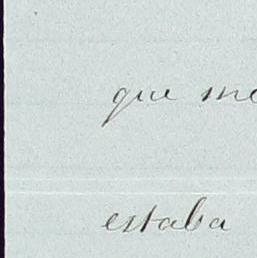 que me
estaba